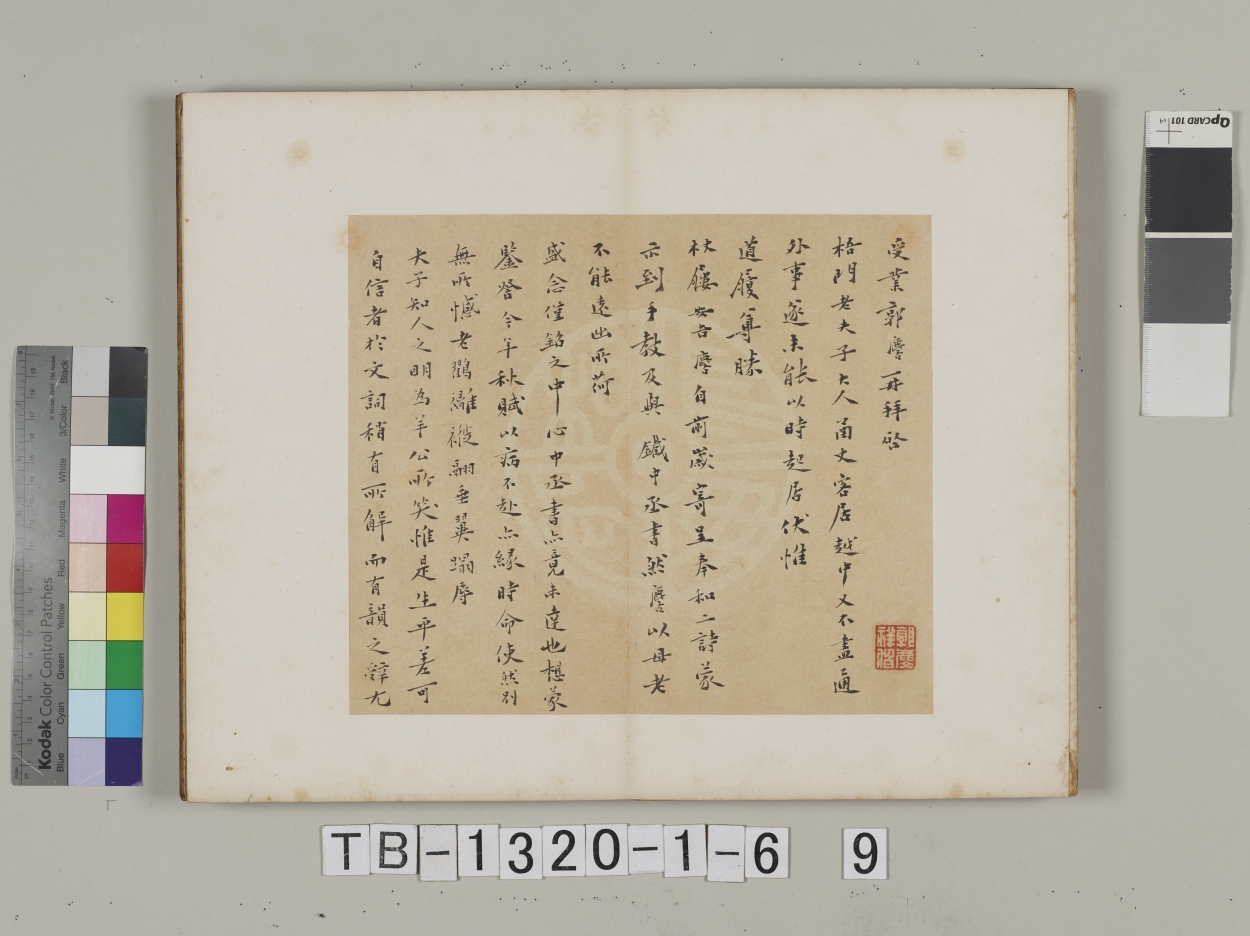 受業郭麐再拜啓
梧門老夫子大人函丈客居越中又不盡通
外事遂未能以時起居伏惟
道履尊勝
杖屨安吉麐自前歲寄呈奉和二詩蒙
示到手教及與鐵中丞書然麐以母老
不能遠出所荷
盛念僅銘之中心中丞書亦竟未達也想蒙
鑒詧今年秋賦以病不赴亦緣時命使然別
無所憾老鶴離褷翮垂翼蹋辱
大子知人之明為羊公所笑惟是生平差可
自信者於文詞稍有所解而有韻之辭尤
郭麐祥伯
TB-1320-1-6 9
QPCARD 101
Kodak Color Control Patches
Blue Cyan Green Yellow Red Magenta White 3/Color Black